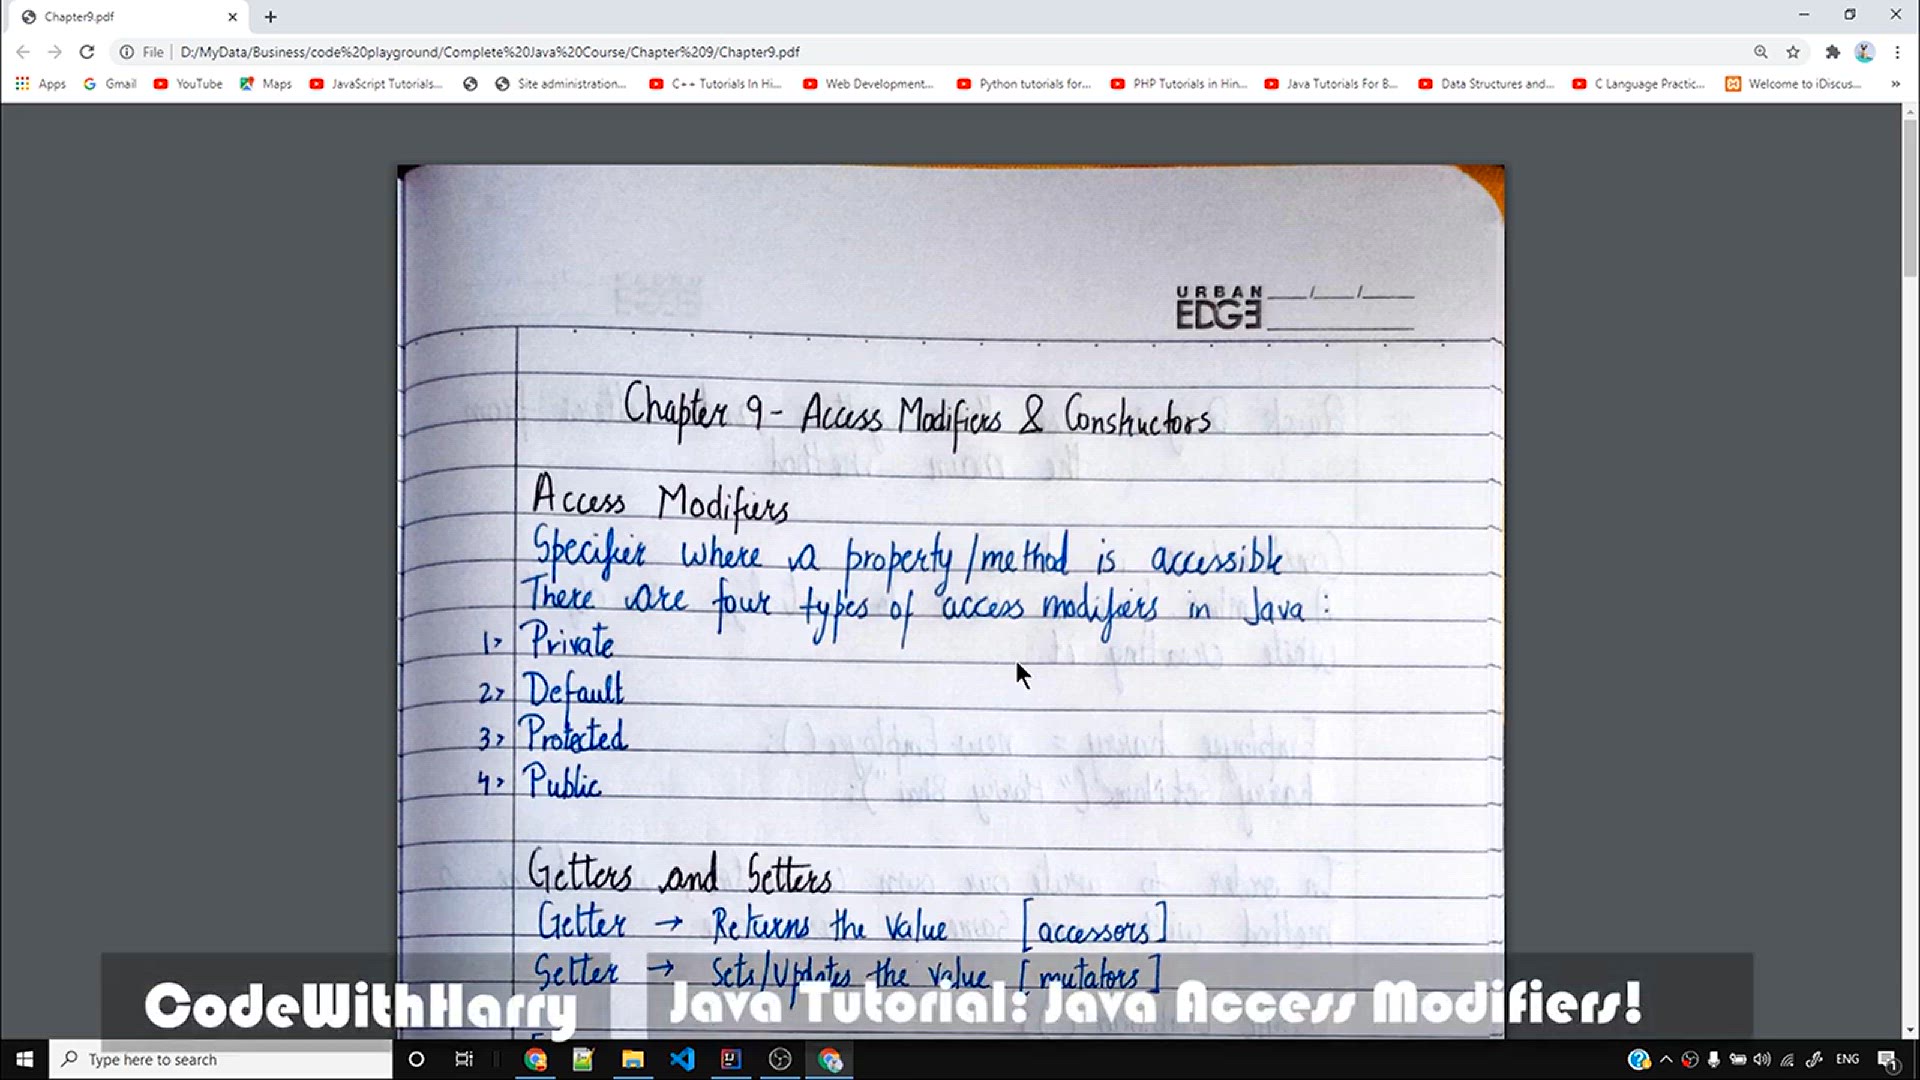 Chapter9.pdf
File | D:/MyData/Business/code%20playground/Complete%20Java%20Course/Chapter%209/Chapter9.pdf
Apps Gmail YouTube Maps JavaScript Tutorials... Site administration... C++ Tutorials In Hi... Web Development... Python tutorials for... PHP Tutorials in Hin... Java Tutorials For B... Data Structures and... C Language Practic... Welcome to iDiscus... »
URBAN
EDGE
Chapter 9 - Access Modifiers & Constructors
Access Modifiers
Specifier where a property/method is accessible
There are four types of access modifiers in Java :
1> Private
2> Default
3> Protected
4> Public
Getters and Setters
Getter → Returns the value [accessors]
Setter → Sets/Updates the value [mutators]
CodeWithHarry Java Tutorial: Java Access Modifiers!
Type here to search
ENG
1